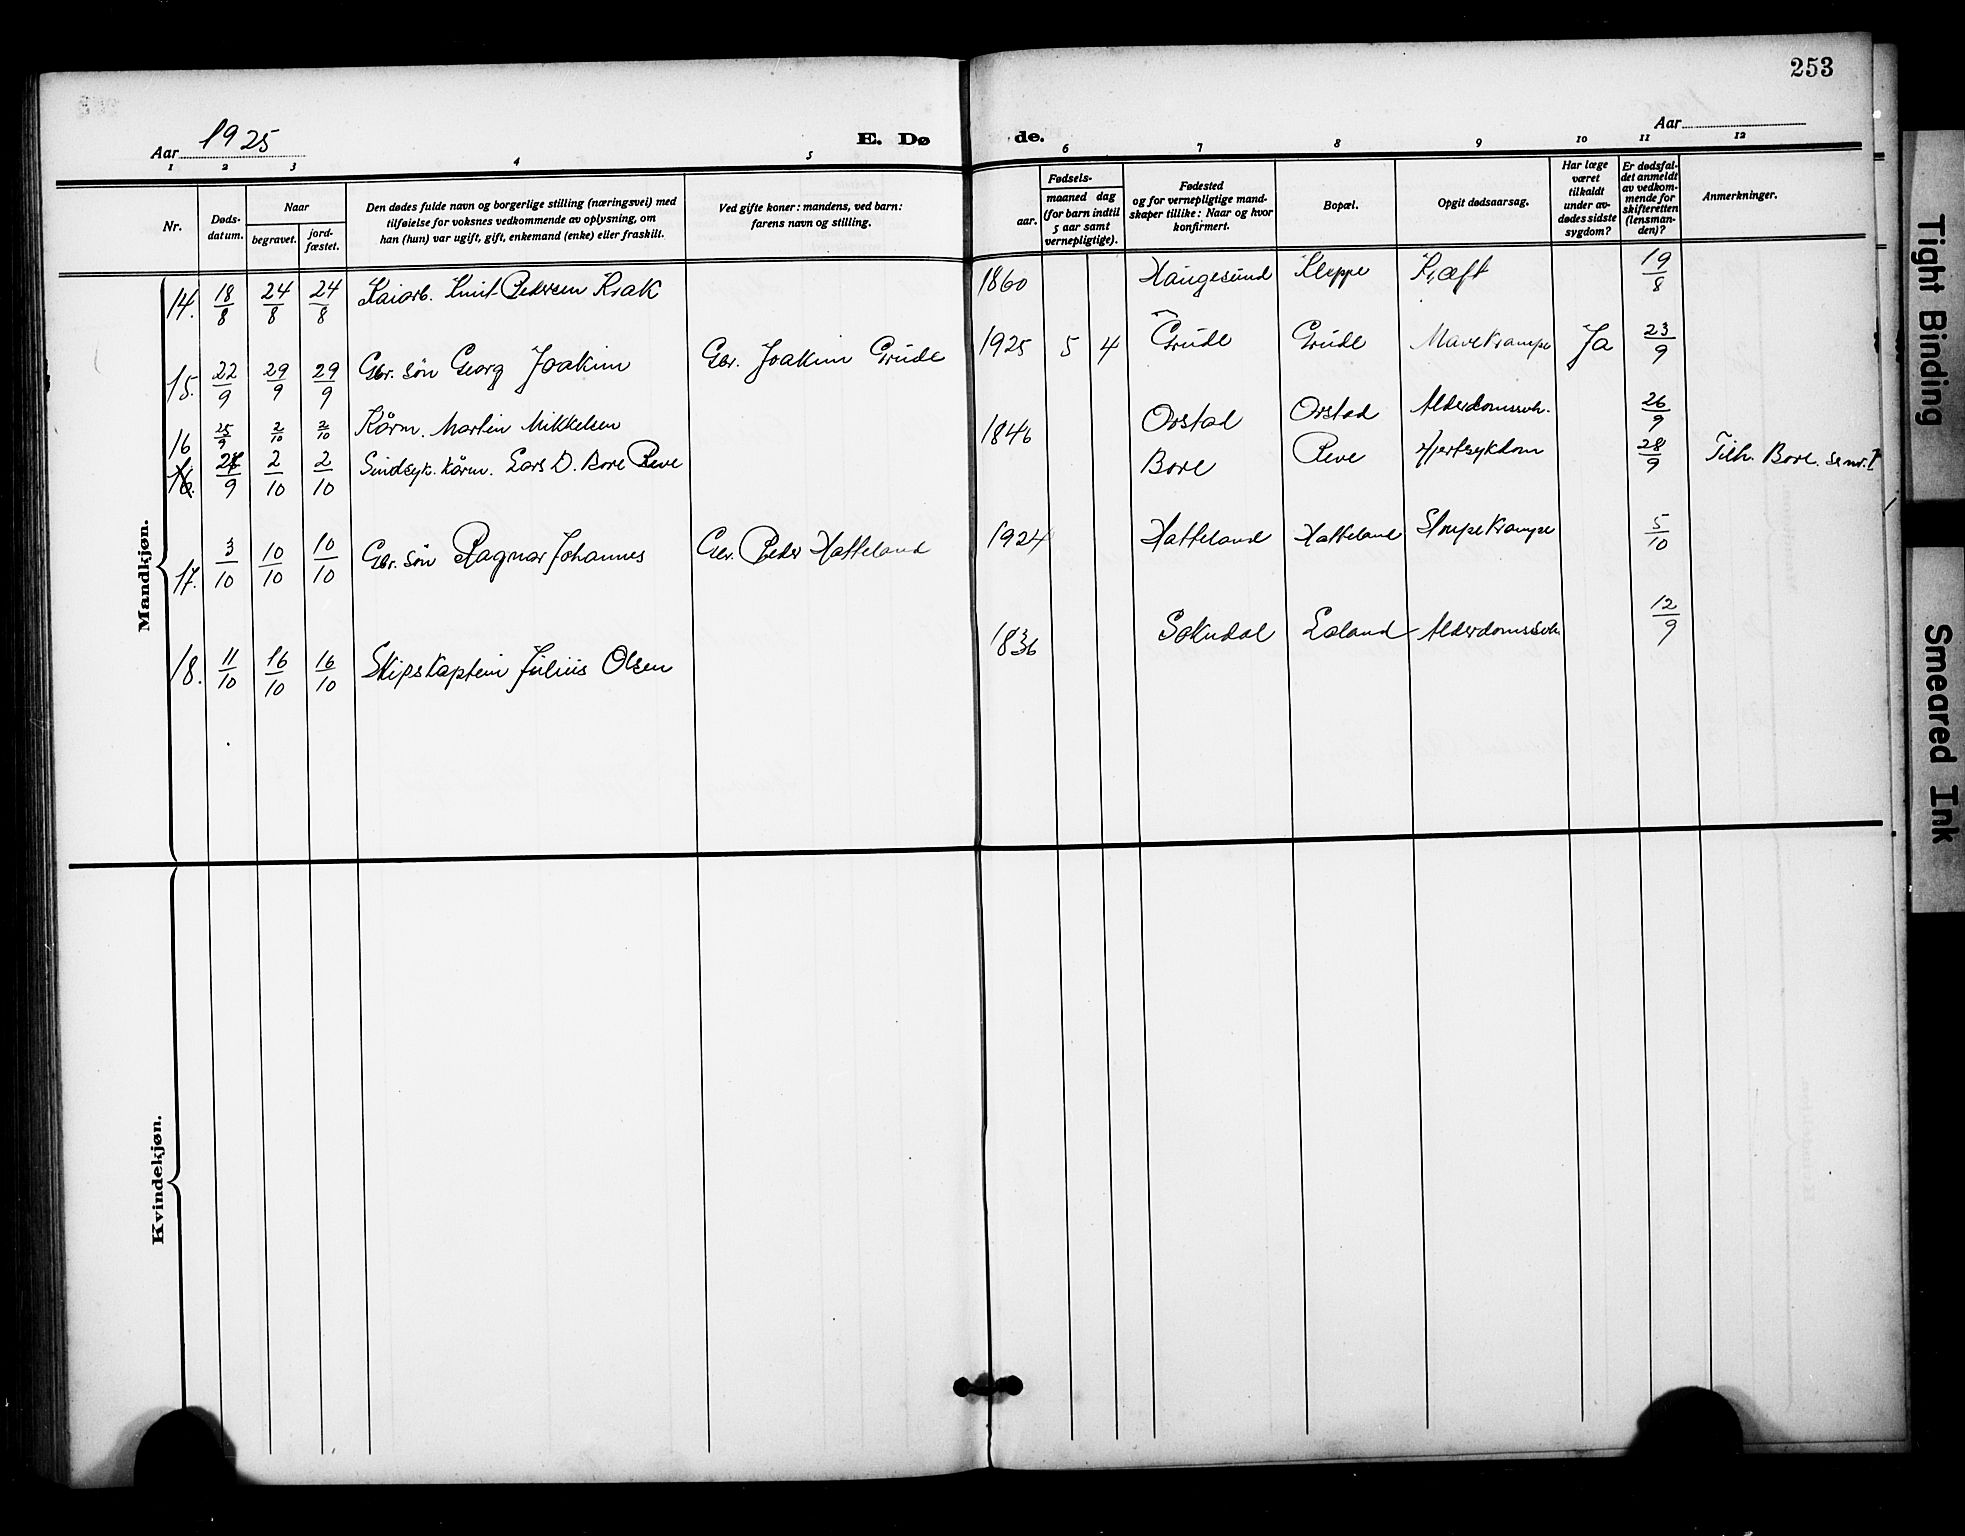 253
Aar 1925
E. Dø
de.
Aar
1 2 3 4 5 6 7 8 9 10 11 12
Nr.
Døds-
datum.
Naar
begravet.
jord-
fæstet.
Den dødes fulde navn og borgerlige stilling (næringsvei) med
tilføielse for voksnes vedkommende av oplysning, om
han (hun) var ugift, gift, enkemand (enke) eller fraskilt.
Ved gifte koner: mandens, ved barn:
farens navn og stilling.
Fødsels-
aar.
maaned dag
(for barn indtil
5 aar samt
vernepligtige).
Fødested
og for vernepligtige mand-
skaper tillike: Naar og hvor
konfirmert.
Bopæl.
Opgit dødsaarsag.
Har læge
været
tilkaldt
under av-
dødes sidste
sygdom?
Er dødsfal-
det anmeldt
av vedkom-
mende for
skifteretten
(lensman-
den)?
Anmerkninger.
Mandkjøn.
14. 18/8 24/8 24/8 Kaiarb. Knut Pedersen Krak 1860 Haugesund Kleppe Kræft 19/8
15. 22/9 29/9 29/9 Gbr. søn Georg Joakim Gbr. Joakim Grude 1925 5 4 Grude Grude Mavekrampe Ja 23/9
16 25/9 2/10 2/10 Kårm. Martin Mikkelsen 1846 Orstad Orstad Alderdomssvh. 26/9
16. 9 2/10 2/10 Sindsyk. Kårm. Lars D. Bore Reve Bore Reve Hjertsykdom 28/9 Tilh. Bore. Se nr. I
17. 3/10 10/10 10/10 Gbr. søn Ragnar Johannes Gbr. Peder Hatteland 1924 Hatteland Hatteland Strupekrampe 5/10
18. 11/10 16/10 16/10 Skipskaptein Julius Olsen 1836 Sokndal Laland Alderdomssvh. 12/9
Kvindekjøn.
Tight Binding
Smeared Ink